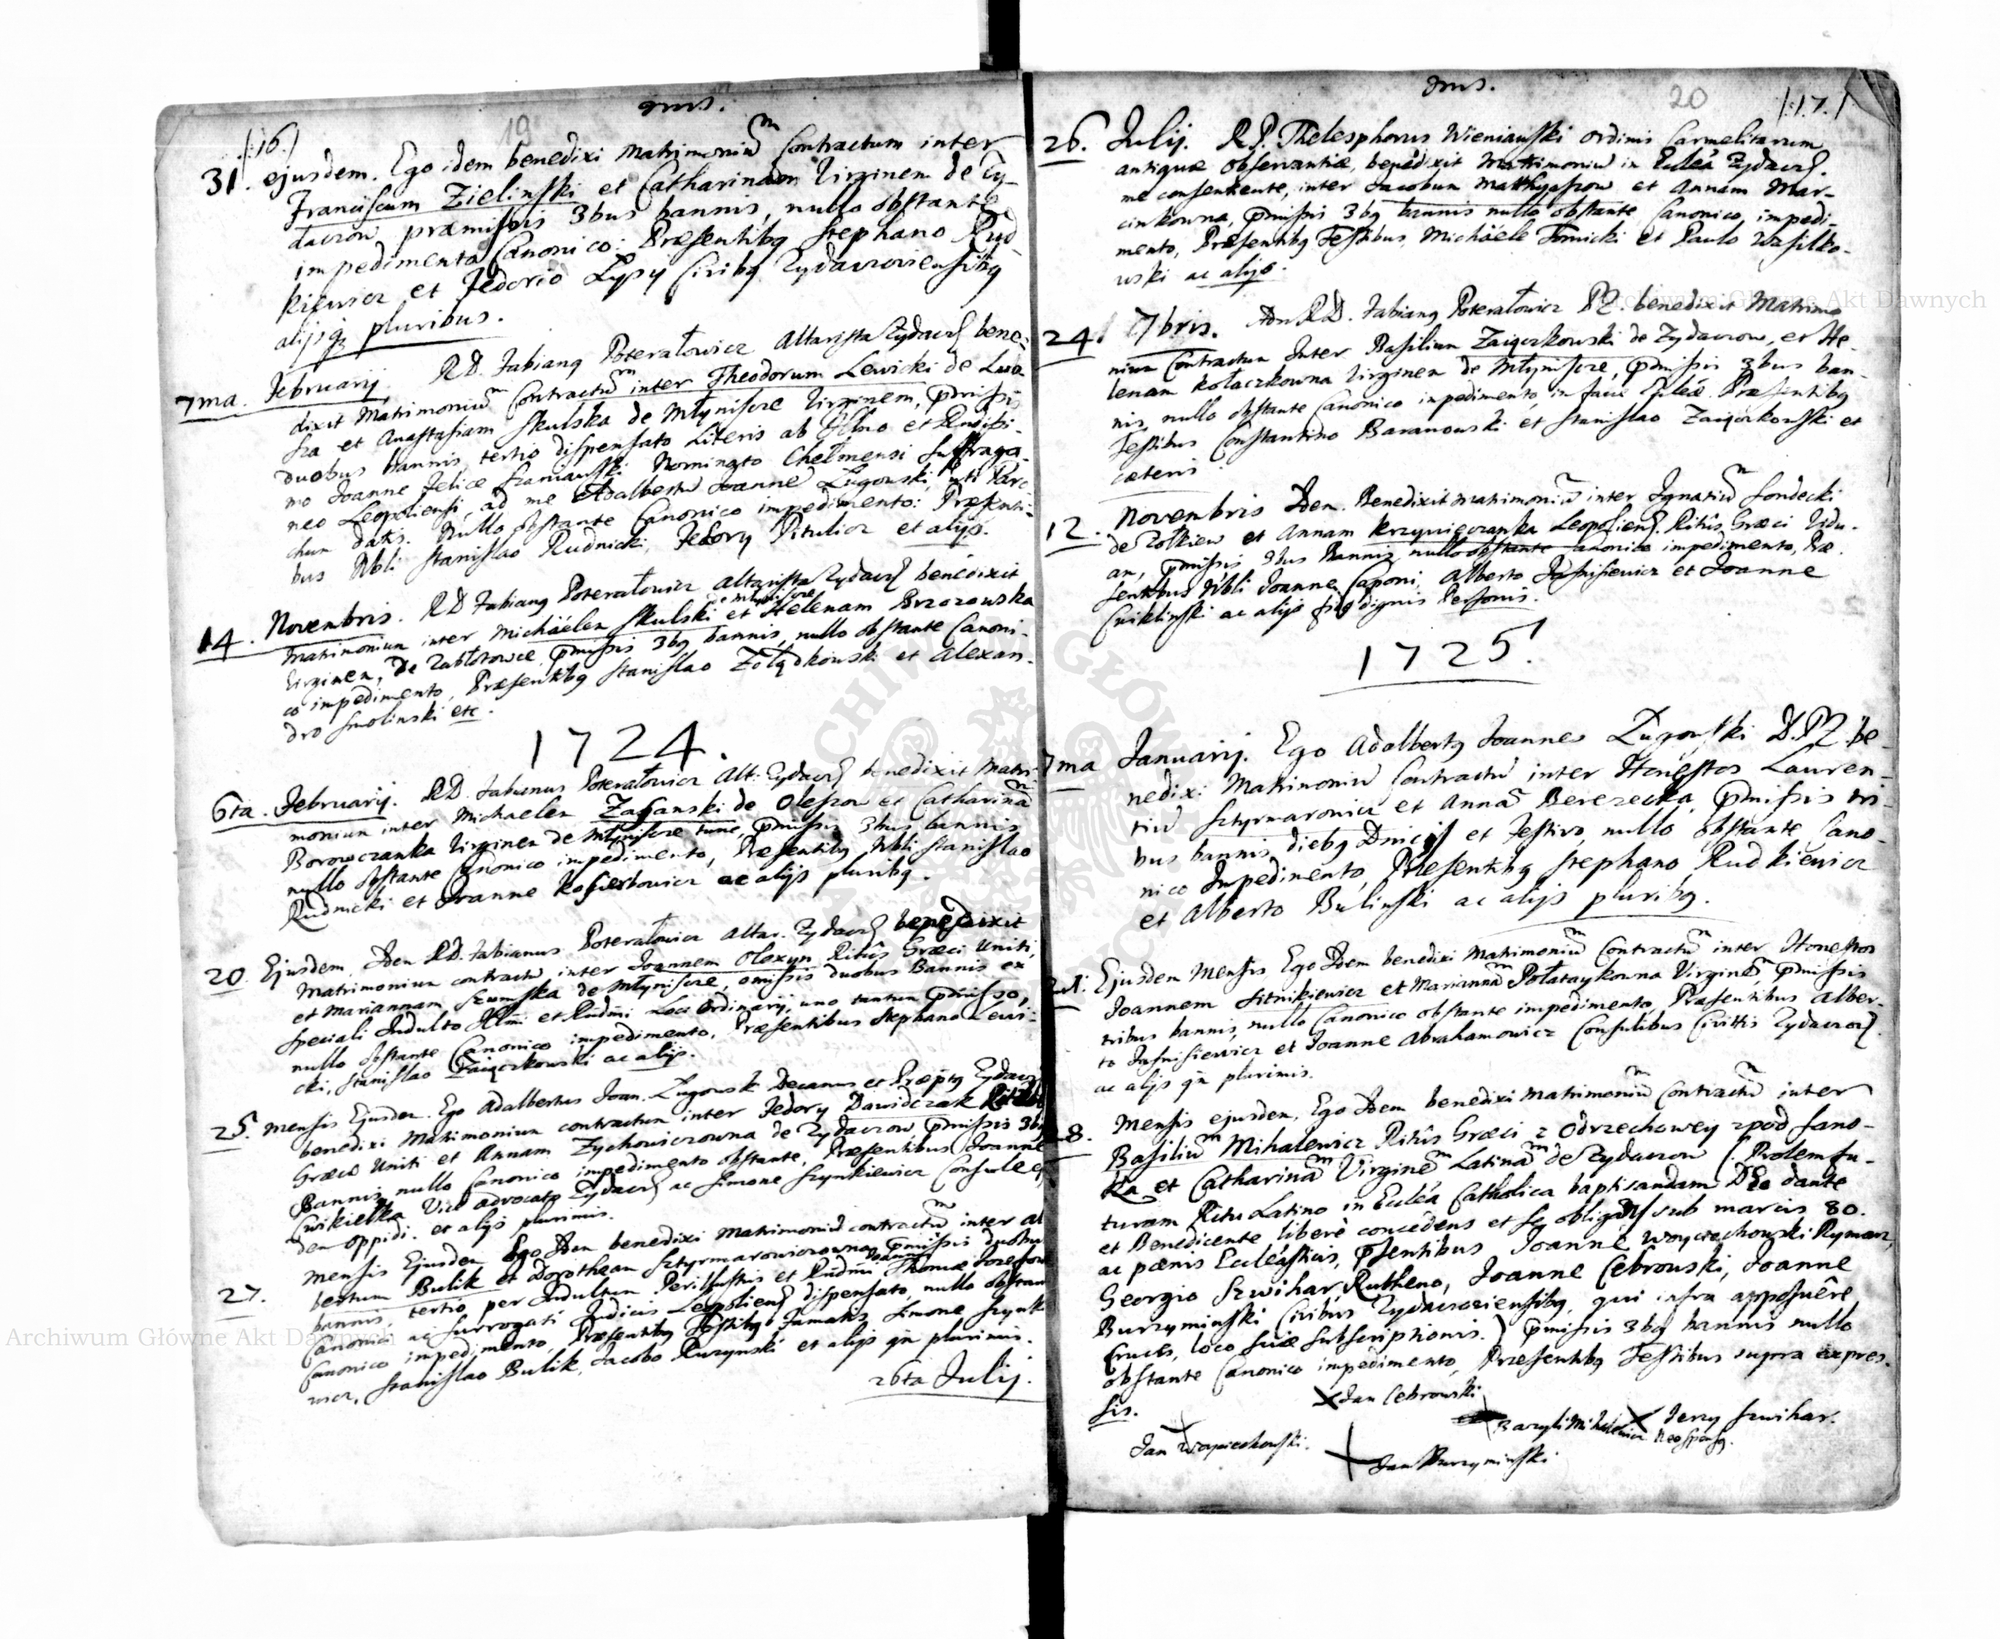 19
/:16:/
31. ejusdem. Ego idem benedixi Matrimoniū Contractum inter
Franciscum Zielinski et Catharinam Virginem de Zy-
daczow præmissis 3bus bannis, nullo obstante
impedimento Canonico: Præsentibq Stephano Rud-
kiewicz et Fedorio Lysy Civibq Zydaczoviensibq
alijsq pluribus.
7ma. Februarij. RD. Fabianq Poterałowicz Altarista Zydacz bene-
dixit Matrimoniū Contractū inter Theodorum Lewicki de
et Anastasiam Skulska de Młynisce Virginem, pmissis
duobus bannis, tertio dispensato Literis ab Illmo et Rndissi-
mo Joanne Felice Szaniawski Nominato Chełmensi Suffraga-
neo Leopoliensi, ad me Adalbertū Joannē Ługowski, uti Paro-
chum datis. Nullo obstante Canonico impedimento: Præsenti-
bus Nbli Stanislao Rudnicki, Fedory Pitulicz et alijs.
14. Novembris. RD Fabianq Poterałowicz Altarista Zydacz benedixit
Matrimonium inter Michäelem Skulski e Młynisce et Helenam Brzozowska
Virginem, de Zabłotowce, pmissis 3bq bannis, nullo obstante Canoni-
co impedimento, Præsentibq Stanislao Zołądkowski et Alexan-
dro Smolinski etc.
1724.
6ta. Februarij. RD. Fabianus Poterałowicz Alt. Zydacz benedixit Matri-
monium inter Michaelem Zasanski de Oleszow et Catharinā
Borowczanka Virginem de Młynisce tunc, pmissis 3bus bannis
nullo obstante Canonico impedimento, Præsentibq Nbli Stanislao
Rudnicki et Joanne Kosierbowicz ac alijs pluribq.
20. Ejusdem, Idem RD. Fabianus Poterałowicz Altar. Zydacz benedixit
Matrimonium contractū inter Joannem Olexyn Ritûs Græci Uniti,
et Mariannam Szumska de Młynisce, omissis duobus Bannis, ex
speciali Indulto Illmi et Rndmi Loci Ordinarij, uno tantum pmisso,
nullo obstante Canonico impedimento, Præsentibus Stephano Lewi-
cki, Stanislao Zaiączkowski ac alijs.
25. Mensis Ejusdem. Ego Adalbertus Joan. Ługowski Decanus et Præptq Zydacz
benedixi Matrimonium contractum inter Fedory Dawidczak Ritûs
Græci Uniti et Annam Zychowiczowna de Zydaczow pmissis 3bq
Bannis, nullo Canonico impedimento obstante, Præsentibus Joanne
Cwikielka Vice advocato Zydacz ac Simone Szynkiewicz Consule
dem oppidi, et alijs plurimis.
27. Mensis Ejusdem Ego Idem benedixi Matrimoniū contractū inter Al
bertum Bulik et Dorotheam Sztyrmarowiczowna, pmissis duobus
bannis, tertio per Indultum Perillustris et Rndmi Joannis Thomæ Jozefowicz
Canonici ac Surrogati Judicis Leopoliens dispensato, nullo obstante
Canonico impedimento, Præsentibq Testibq Famatis Simone Szynkie
wicz, Stanislao Bulik, Jacobo Ruzynski et alijs qm plurimis.
26ta Julij.
20
/:17:/
26. Julij. RP. Thelesphorus Wieniawski Ordinis Carmelitarum
antiquæ observantiæ, benedixit Matrimoniū in Eccleâ Zydacz.
me consentiente, inter Jacobum Matthyaszow et Annam Mar-
cinkowna, pmissis 3bq bannis nullo obstante Canonico, impedi-
mento, Præsentibq Testibus, Michäele Fornicki et Paulo Wasilko-
wski ac alijs.
24. 7bris. Adm RD. Fabianq Poterałowicz PZ. benedixit Matrimo
nium Contractum Inter Basilium Zaiączkowski de Zydaczow, et He-
lenam Kołaczkowna Virginem de Młynisce, pmissis 3bus ban-
nis, nullo obstante Canonico impedimento, in facie Eccleæ. Præsentibq
Testibus Constantino Baranowski et Stanislao Zaiączkowski et
cæteris
12. Novembris Idem. Benedixit Matrimoniū inter Ignatiū Sondecki
de Zolkiew et Annam Krzywięczanka Leopoliens. Ritûs Græci Vidu-
am, pmissis 3bus Bannis, nullo obstante canonico impedimento, Præ-
sentibus Nbli Joanne Caponi, Alberto Jasnisiewicz et Joanne
Cwiklinski ac alijs fide dignis Personis.
1725.
7ma Januarij. Ego Adalbertq Joannes Ługowski D.PZ. be-
nedixi Matrimoniū Contractū inter Honestos Lauren-
tiū Sztyrmarowicz et Annā Berezecka, pmissis tri-
bus bannis, diebq Dnicis et Festivo, nullo obstante Cano-
nico Impedimento, Præsentibq Stephano Rudkiewicz
et Alberto Bulinski ac alijs pluribq.
21. Ejusdem Mensis Ego Idem benedixi Matrimoniū Contractū inter Honestos
Joannem Sitnikiewicz et Mariannā Połataykowna Virginē, pmissis
tribus bannis, nullo Canonico obstante impedimento, Præsentibus Alber-
to Jasnisiewicz et Joanne Abrahamowicz Consulibus Civittis Zydaczow.
ac alijs qm plurimis.
28. Mensis ejusdem, Ego Idem benedixi Matrimoniū Contractū inter
Basiliū Mihalewicz Ritûs Græci z Odrzechowey zpod Sano-
ka et Catharinā Virginē Latinā de Zydaczow (Prolem fu-
turam Ritu Latino in Eccleâ Catholica baptisandam DEo dante
et Benedicente liberè concedens et se obligans sub marcis 80.
ac pænis Eccleâsticis, psentibus Joanne Woyciechowski Rymarz,
Georgio Szwihar, Rutheno, Joanne Cebrowski, Joanne
Burzyminski Civibus Zydaczoviensibq, qui infra apposuêre
Cruces, loco suæ subscriptionis.) pmissis 3bq bannis nullo
obstante Canonico impedimento, Præsentibq Testibus supra expres-
sis.
Jan Cebrowski
Bazyli Mihalewicz Neosponsq.
Jerzy Szwihar.
Jan Woyciechowski.
Jan Burzyminski
Archiwum Główne Akt Dawnych
Archiwum Główne Akt Dawnych